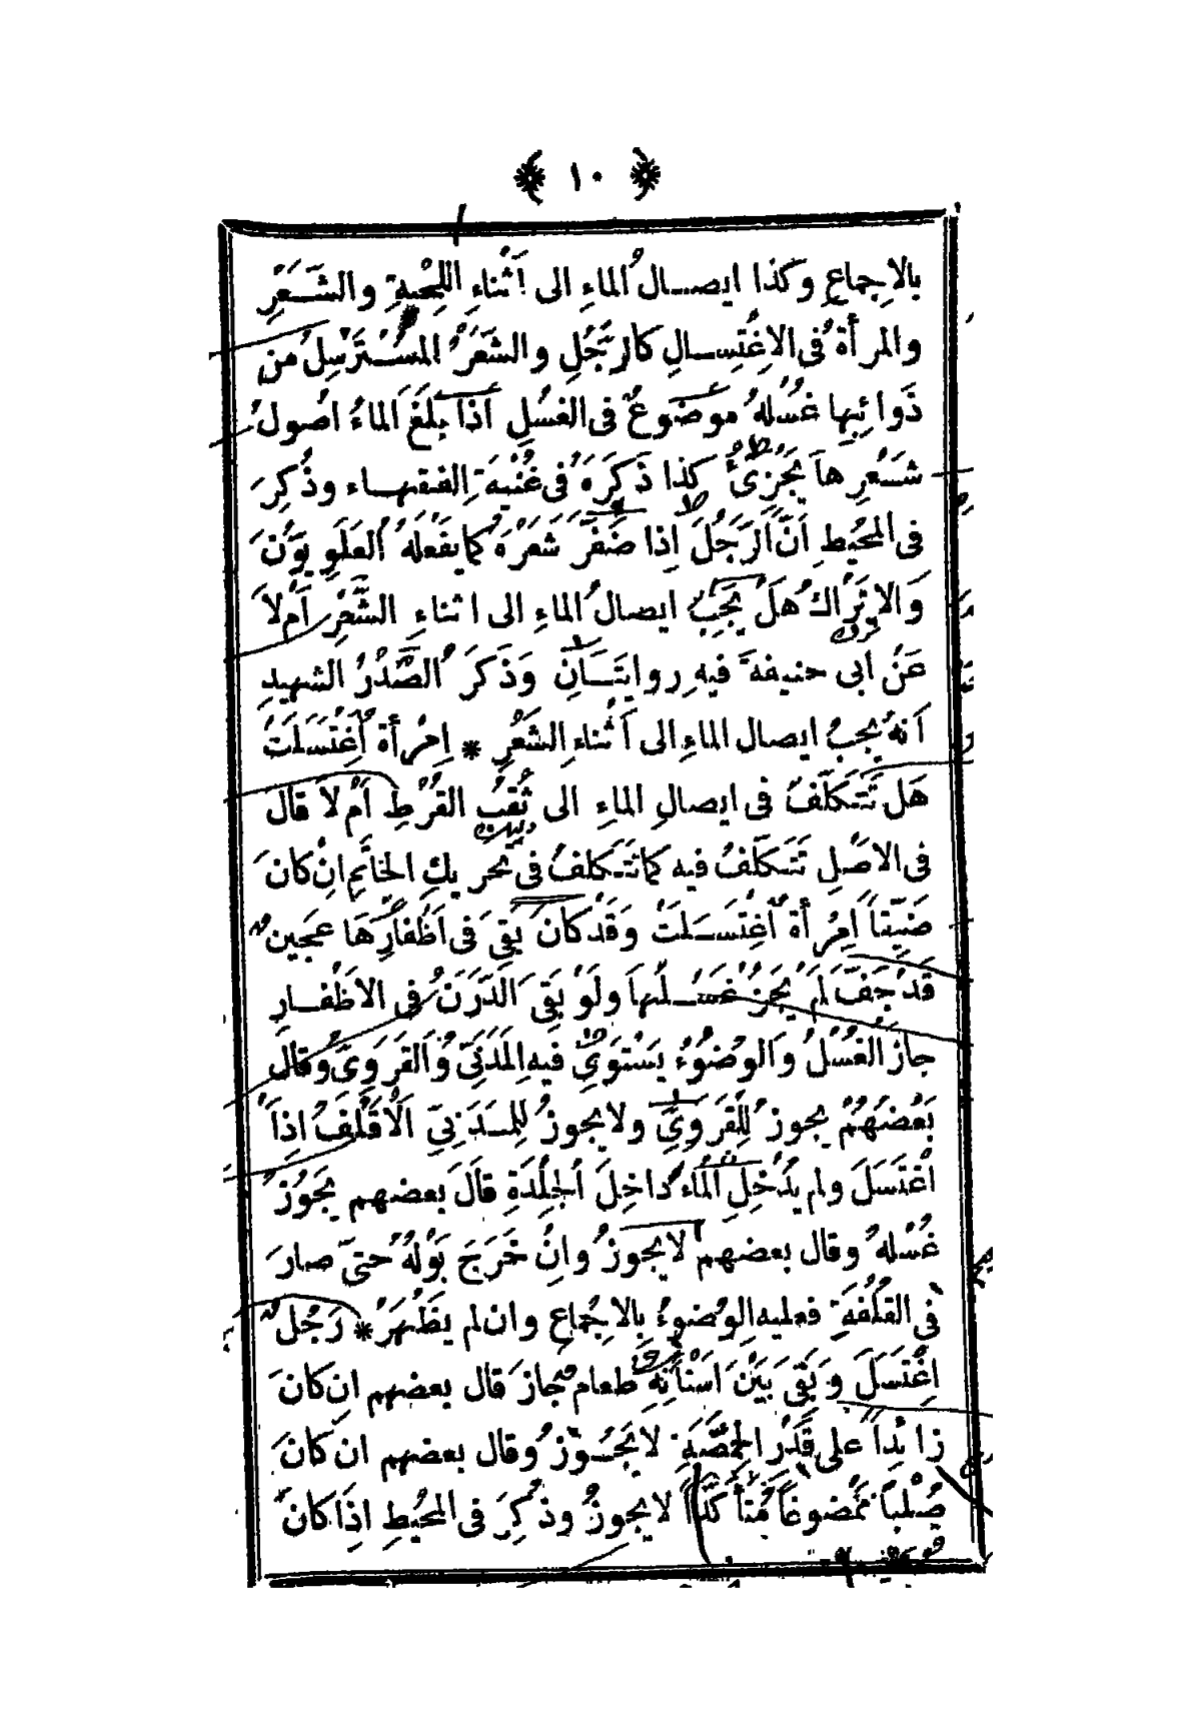 ﴿ ١٠ ﴾
بالاجماع وكذا ايصال الماء الى اثناء اللحية والشعر
والمرأة فى الاغتسال كالرجل والشعر المسترسل من
ذوائبها غسله موضوع فى الغسل اذا بلغ الماء اصول
شعرها يجزئ كذا ذكره فى غنية الفقهاء وذكر
فى المحيط ان الرجل اذا ضفر شعره كما يفعله العلويون
والاتراك هل يجب ايصال الماء الى اثناء الشعر ام لا
عن ابى حنيفة فيه روايتان وذكر الصدر الشهيد
انه يجب ايصال الماء الى اثناء الشعر * امرأة اغتسلت
هل تتكلف فى ايصال الماء الى ثقب القرط ام لا قال
فى الاصل تتكلف فيه كما تتكلف فى تحريك الخاتم ان كان
ضيقا امرأة اغتسلت وقد كان بقى فى اظفارها عجين
قد جف لم يجز غسلها ولو بقى الدرن فى الاظفار
جاز الغسل والوضوء يستوى فيه المدنى والقروى وقال
بعضهم يجوز للقروى ولا يجوز للمدنى الاقلف اذا
اغتسل ولم يدخل الماء داخل الجلدة قال بعضهم يجوز
غسله وقال بعضهم لا يجوز وان خرج بوله حتى صار
فى القلفة فعليه الوضوء بالاجماع وان لم يظهر * رجل
اغتسل وبقى بين اسنانه طعام جاز قال بعضهم ان كان
زائدا على قدر الحمصة لا يجوز وقال بعضهم ان كان
صلبا ممضوغا متأكدا لا يجوز وذكر فى المحيط اذا كان